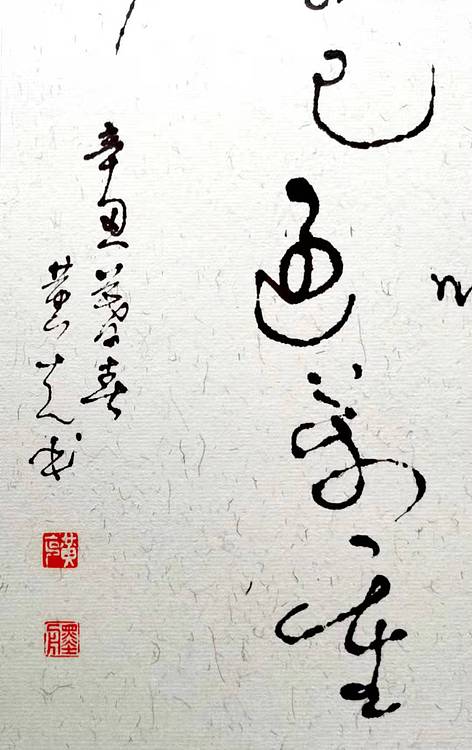 已過萬重
辛丑暮春
黃
書
黃
墨